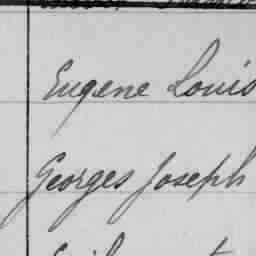 Eugene Louis
Georges Joseph